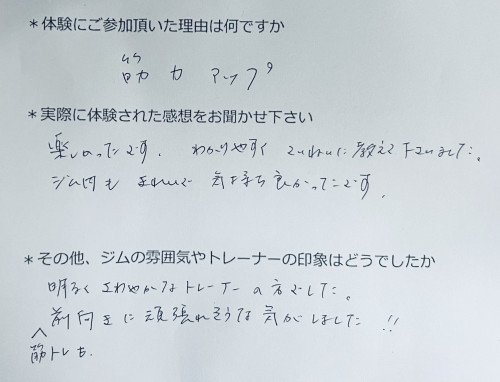 ＊体験にご参加頂いた理由は何ですか
筋力アップ
＊実際に体験された感想をお聞かせ下さい
楽しかったです。わかりやすくていねいに教えて下さいました。
ジム内もきれいで気持ち良かったです。
＊その他、ジムの雰囲気やトレーナーの印象はどうでしたか
明るくさわやかなトレーナーの方でした。
前向きに頑張れそうな気がしました!!
筋トレも